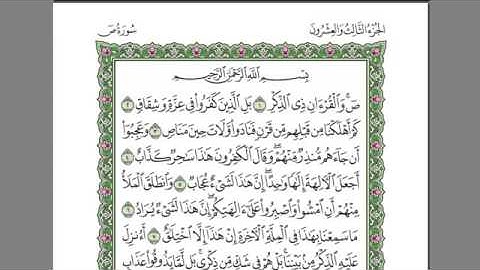 الجزء الثالث والعشرون سورة ص
بِسْمِ ٱللَّهِ ٱلرَّحْمَٰنِ ٱلرَّحِيمِ
صٓ ۚ وَٱلْقُرْءَانِ ذِى ٱلذِّكْرِ ١ بَلِ ٱلَّذِينَ كَفَرُوا۟ فِى عِزَّةٍ وَشِقَاقٍ ٢
كَمْ أَهْلَكْنَا مِن قَبْلِهِم مِّن قَرْنٍ فَنَادَوا۟ وَّلَاتَ حِينَ مَنَاصٍ ٣ وَعَجِبُوٓا۟
أَن جَآءَهُم مُّنذِرٌ مِّنْهُمْ ۖ وَقَالَ ٱلْكَٰفِرُونَ هَٰذَا سَٰحِرٌ كَذَّابٌ ٤
أَجَعَلَ ٱلْـَٔالِهَةَ إِلَٰهًا وَٰحِدًا ۖ إِنَّ هَٰذَا لَشَىْءٌ عُجَابٌ ٥ وَٱنطَلَقَ ٱلْمَلَأُ
مِنْهُمْ أَنِ ٱمْشُوا۟ وَٱصْبِرُوا۟ عَلَىٰٓ ءَالِهَتِكُمْ ۖ إِنَّ هَٰذَا لَشَىْءٌ يُرَادُ ٦
مَا سَمِعْنَا بِهَٰذَا فِى ٱلْمِلَّةِ ٱلْـَٔاخِرَةِ إِنْ هَٰذَآ إِلَّا ٱخْتِلَٰقٌ ٧ أَءُنزِلَ
عَلَيْهِ ٱلذِّكْرُ مِنۢ بَيْنِنَا ۚ بَلْ هُمْ فِى شَكٍّ مِّن ذِكْرِى ۖ بَل لَّمَّا يَذُوقُوا۟ عَذَابِ